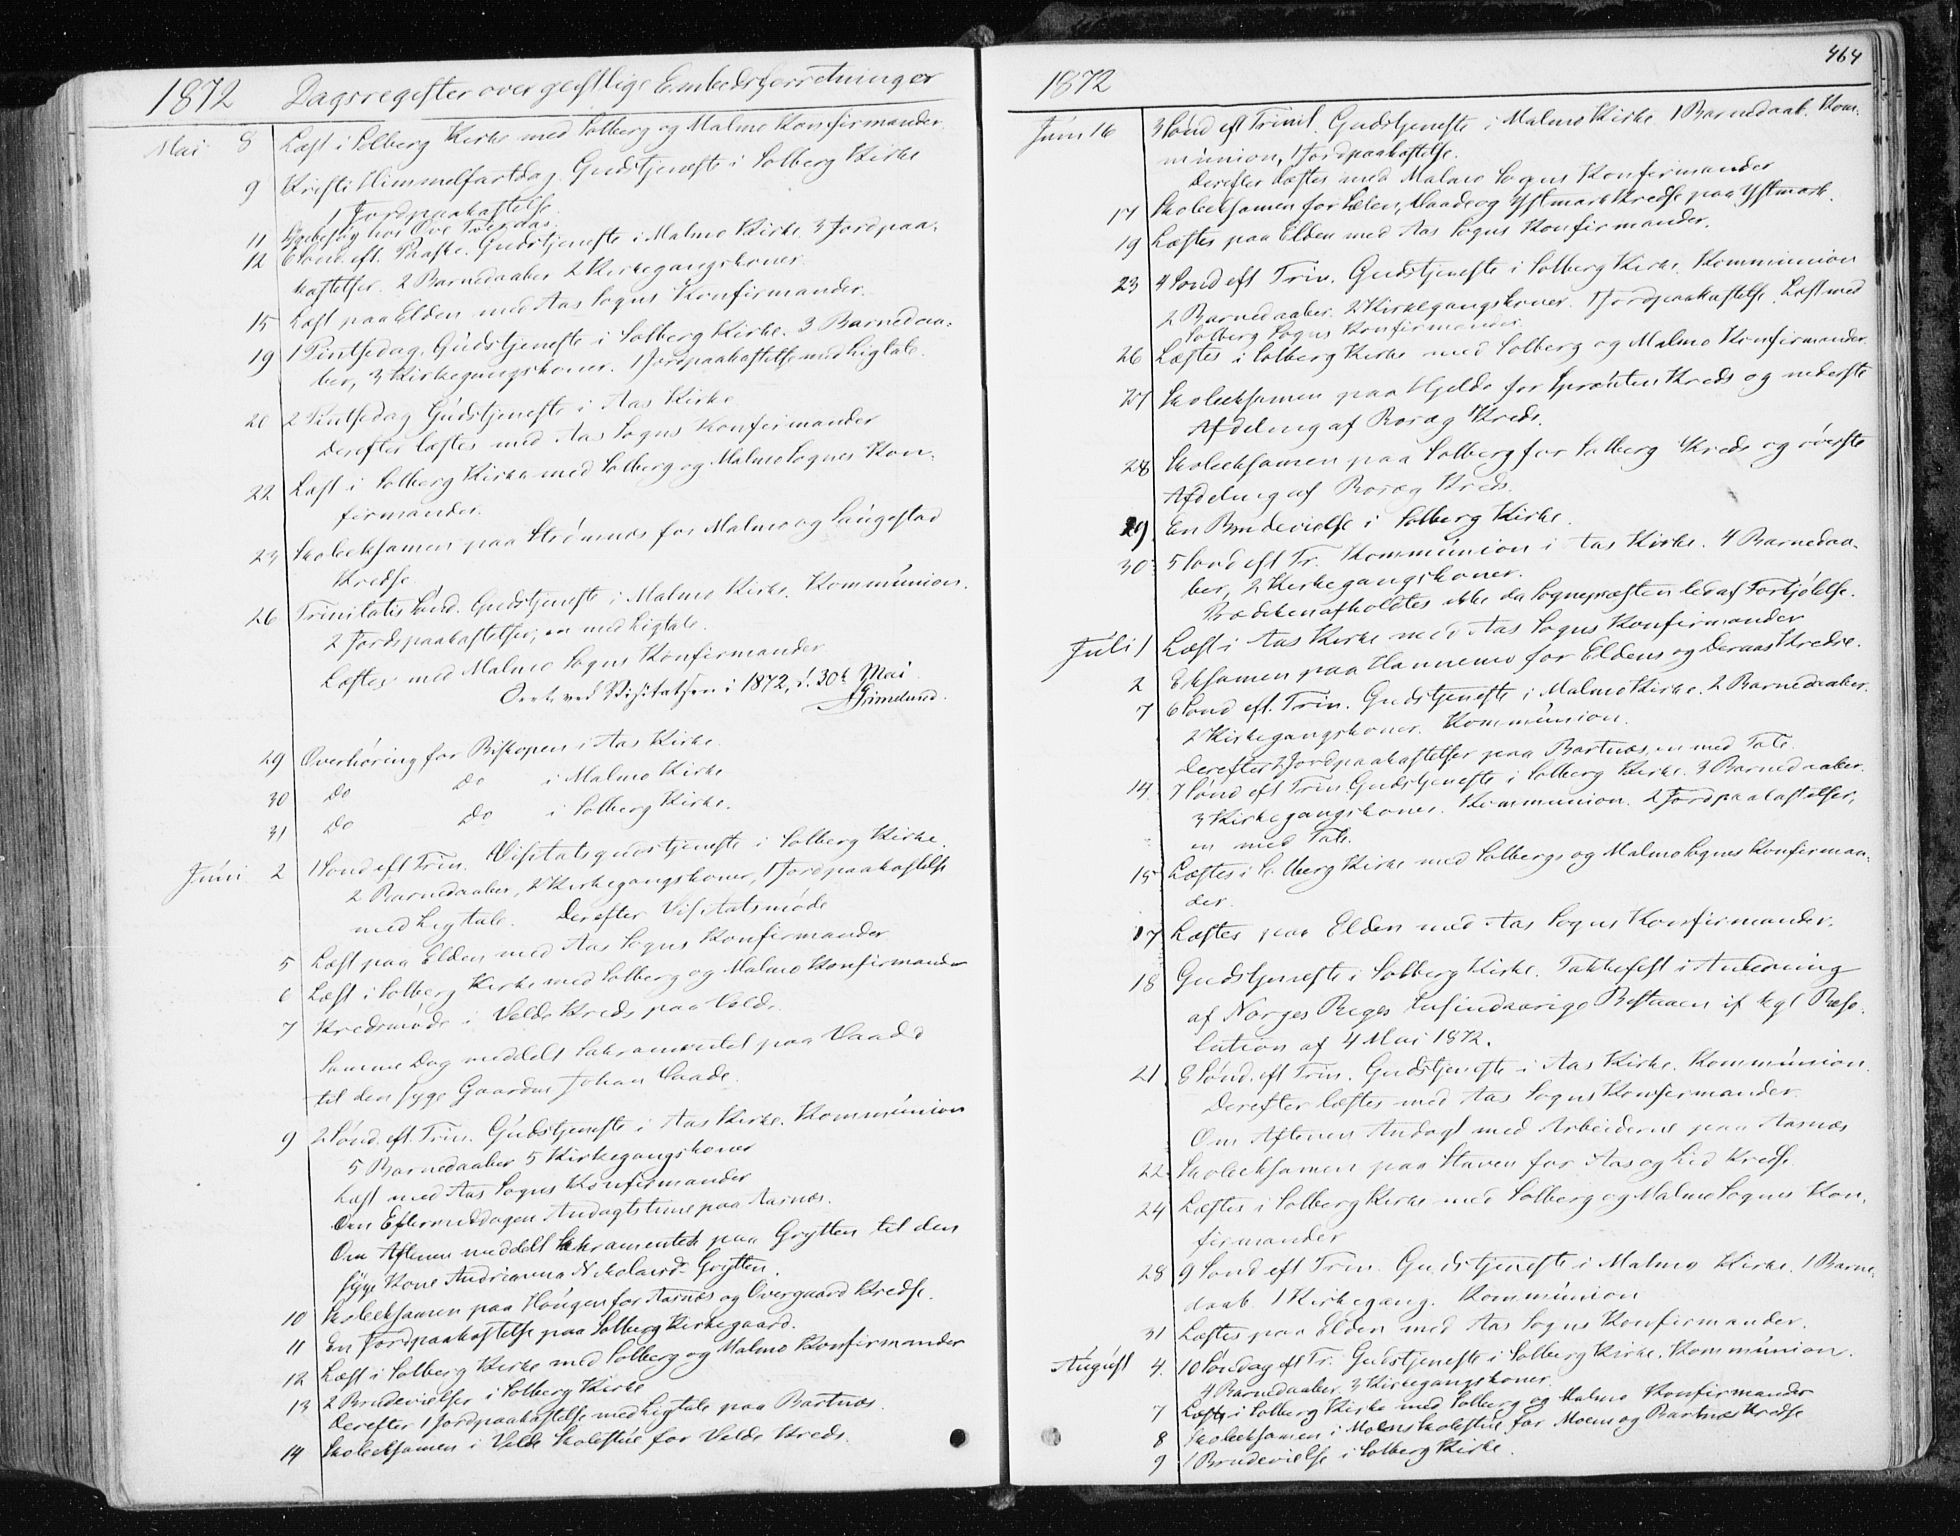 1872 Dagsregister over geistlige Embedsforretninger
Mai 8 Læst i Solberg Kirke med Solberg og Malmo Konfirmander.
9 Kristi Himmelfartdag. Gudstjeneste i Solberg Kirke
1 Jordpaakastelse.
11 Sygebesøg hos Ove
12 6 Sønd. eft. Paaske. Gudstjeneste i Malmo Kirke. 3 Jordpaa-
kastelser. 2 Barnedaaber 2 Kirkegangskoner.
15 Læst paa Elden med Aas Sogns Konfirmander.
19 1 Pintsedag. Gudstjeneste i Solberg Kirke. 3 Barnedaa-
ber, 3 Kirkegangskoner. 1 Jordpaakastelse med Ligtale.
20 2 Pintsedag Gudstjeneste i Aas Kirke
Derefter læstes med Aas Sogns Konfirmander
22 Læst i Solberg Kirke med Solberg og Malmo Sognes Kon-
firmander.
23 Skoleeksamen paa Strømnæs for Malmo og Saugestad
Kredse
26 Trinitatis Sønd. Gudstjeneste i Malmo Kirke. Kommunion.
2 Jordspaakastelser, en med Ligtale.
Læstes med Malmo Sogns Konfirmander
ved Visitatsen i 1872, d. 30te Mai
AGrimelund.
29 Overhøring for Biskopen i Aas Kirke.
30 Do Do i Malmo Kirke
31 Do Do i Solberg Kirke.
Juni 2 1 Sønd eft Trin. Visitatsgudstjeneste i Solberg Kirke.
2 Barnedaaber, 2 Kirkegangskoner, 1 Jordpaakastelse
med Ligtale. Derefter Visitatsmøde
5 Læst paa Elden med Aas Sogns Konfirmander
6 Læst i Solberg Kirke med Solberg og Malmo Konfirmander
7 Kredsmøde i Velde Kreds paa Velde.
Samme Dag meddelt Sakramentet paa Vaade
til den syge Gaardm Johan Vaade.
9 2 Sønd. eft. Trin. Gudstjeneste i Aas Kirke. Kommunion
5 Barnedaaber 5 Kirkegangskoner
Læst med Aas Sogns Konfirmander
Om Eftermiddagen Andagtstime paa Aasnæs.
Om Aftenen meddelt Sakramentet paa Grytten til den
syge Kone Andrianna Nikolaisd. Grytten.
10 Skoleeksamen paa Haugen for Aasnæs og Overgaard Kredse.
11 En Jordpaakastelse paa Solberg Kirkegaard.
12 Læst i Solberg Kirke med Solberg og Malmo Konfirmander
13 2 Brudevielser i Solberg Kirke
Derefter 1 Jordpaakastelse med Ligtale paa Bartnæs.
14 Skoleeksamen i Velde Skolestue for Velde Kreds.
464
1872
Juni 16 3 Sønd eft Trinit. Gudstjeneste i Malmo Kirke 1 Barnedaab. Kom-
munion, 1 Jordpaakastelse.
Derefter læstes med Malmo Sogns Konfirmander
17 Skoleeksamen for Sælen, Vaade og Ystmark Kredse paa Ystmark.
19 Læstes paa Elden med Aas Sogns Konfirmander.
23 4 Sønd eft Trin. Gudstjeneste i Solberg Kirke. Kommunion
2 Barnedaaber. 2 Kirkegangskoner. 1 Jordpaakastelse. Læst med
Solberg Sogns Konfirmander.
26 Læstes i Solberg Kirke med Solberg og Malmo Konfirmander.
27 Skoleeksamen paa Hjelde for Sprauten Kreds og nederste
Afdeling af Rosæg Kreds.
28 Skoleeksamen paa Solberg for Solberg Kreds og øverste
Afdeling af Rosæg Kreds.
29. En Brudevielse i Solberg Kirke.
30 5 Sønd eft Tr. Kommunion i Aas Kirke. 4 Barnedaa-
ber, 2 Kirkegangskoner.
Præken afholdtes ikke da Sognepræsten led af Forkjølelse.
Juli 1 Læst i Aas Kirke med Aas Sogns Konfirmander
2 Eksamen paa Hannemo for Eldens og Deraas Kredse.
7 6 Sønd eft. Trin. Gudstjeneste i Malmo Kirke. 2 Barnedaaber.
2 Kirkegangskoner. Kommunion.
Derefter 2 Jordpaakastelser paa Bartnæs, en med Tale.
14 7 Sønd eft Trin Gudstjeneste i Solberg Kirke. 3 Barnedaaber.
3 Kirkegangskoner. Kommunion. 2 Jordpaakastelser,
en med Tale.
15 Læstes i Solberg Kirke med Solbergs og Malmo Sognes Konfirman-
der.
17 Læstes paa Elden med Aas Sogns Konfirmander.
18 Gudstjeneste i Solberg Kirke. Takkefest i Anledning
af Norges Riges tusindaarige Bestaaen if kgl Reso-
lution af 4 Mai 1872.
21. 8 Sønd. eft Trin. Gudstjeneste i Aas Kirke. Kommunion.
Derefter læstes med Aas Sogns Konfirmander.
Om Aftenen Andagt med Arbeiderne paa Aasnæs
22 Skoleeksamen paa Staven for Aas og Lid Kredse
24 Læstes i Solberg Kirke med Solberg og Malmo Sognes Kon-
firmander
28 9 Sønd eft Trin. Gudstjeneste i Malmo Kirke. 1 Barne-
daab. 1 Kirkegang. Kommunion
31 Læstes paa Elden med Aas Sogns Konfirmander.
August 4. 10 Søndag eft Tr. Gudstjeneste i Solberg Kirke. Kommunion.
4 Barnedaaber 3 Kirkegangskoner.
7 Læstes i Solberg Kirke med Solberg og Malmo Konfirmander
8 Skoleeksamen i Moens Skolestue for Moen og Bartnæs Kredse
9 1 Brudevielse i Solberg Kirke.